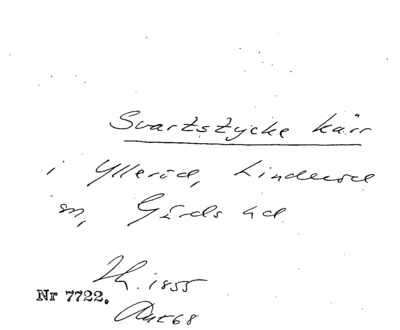 Svartstycke kärr
i Ylleröd, Linderöd
sn, Gärds hd
1855
Nr 7722.